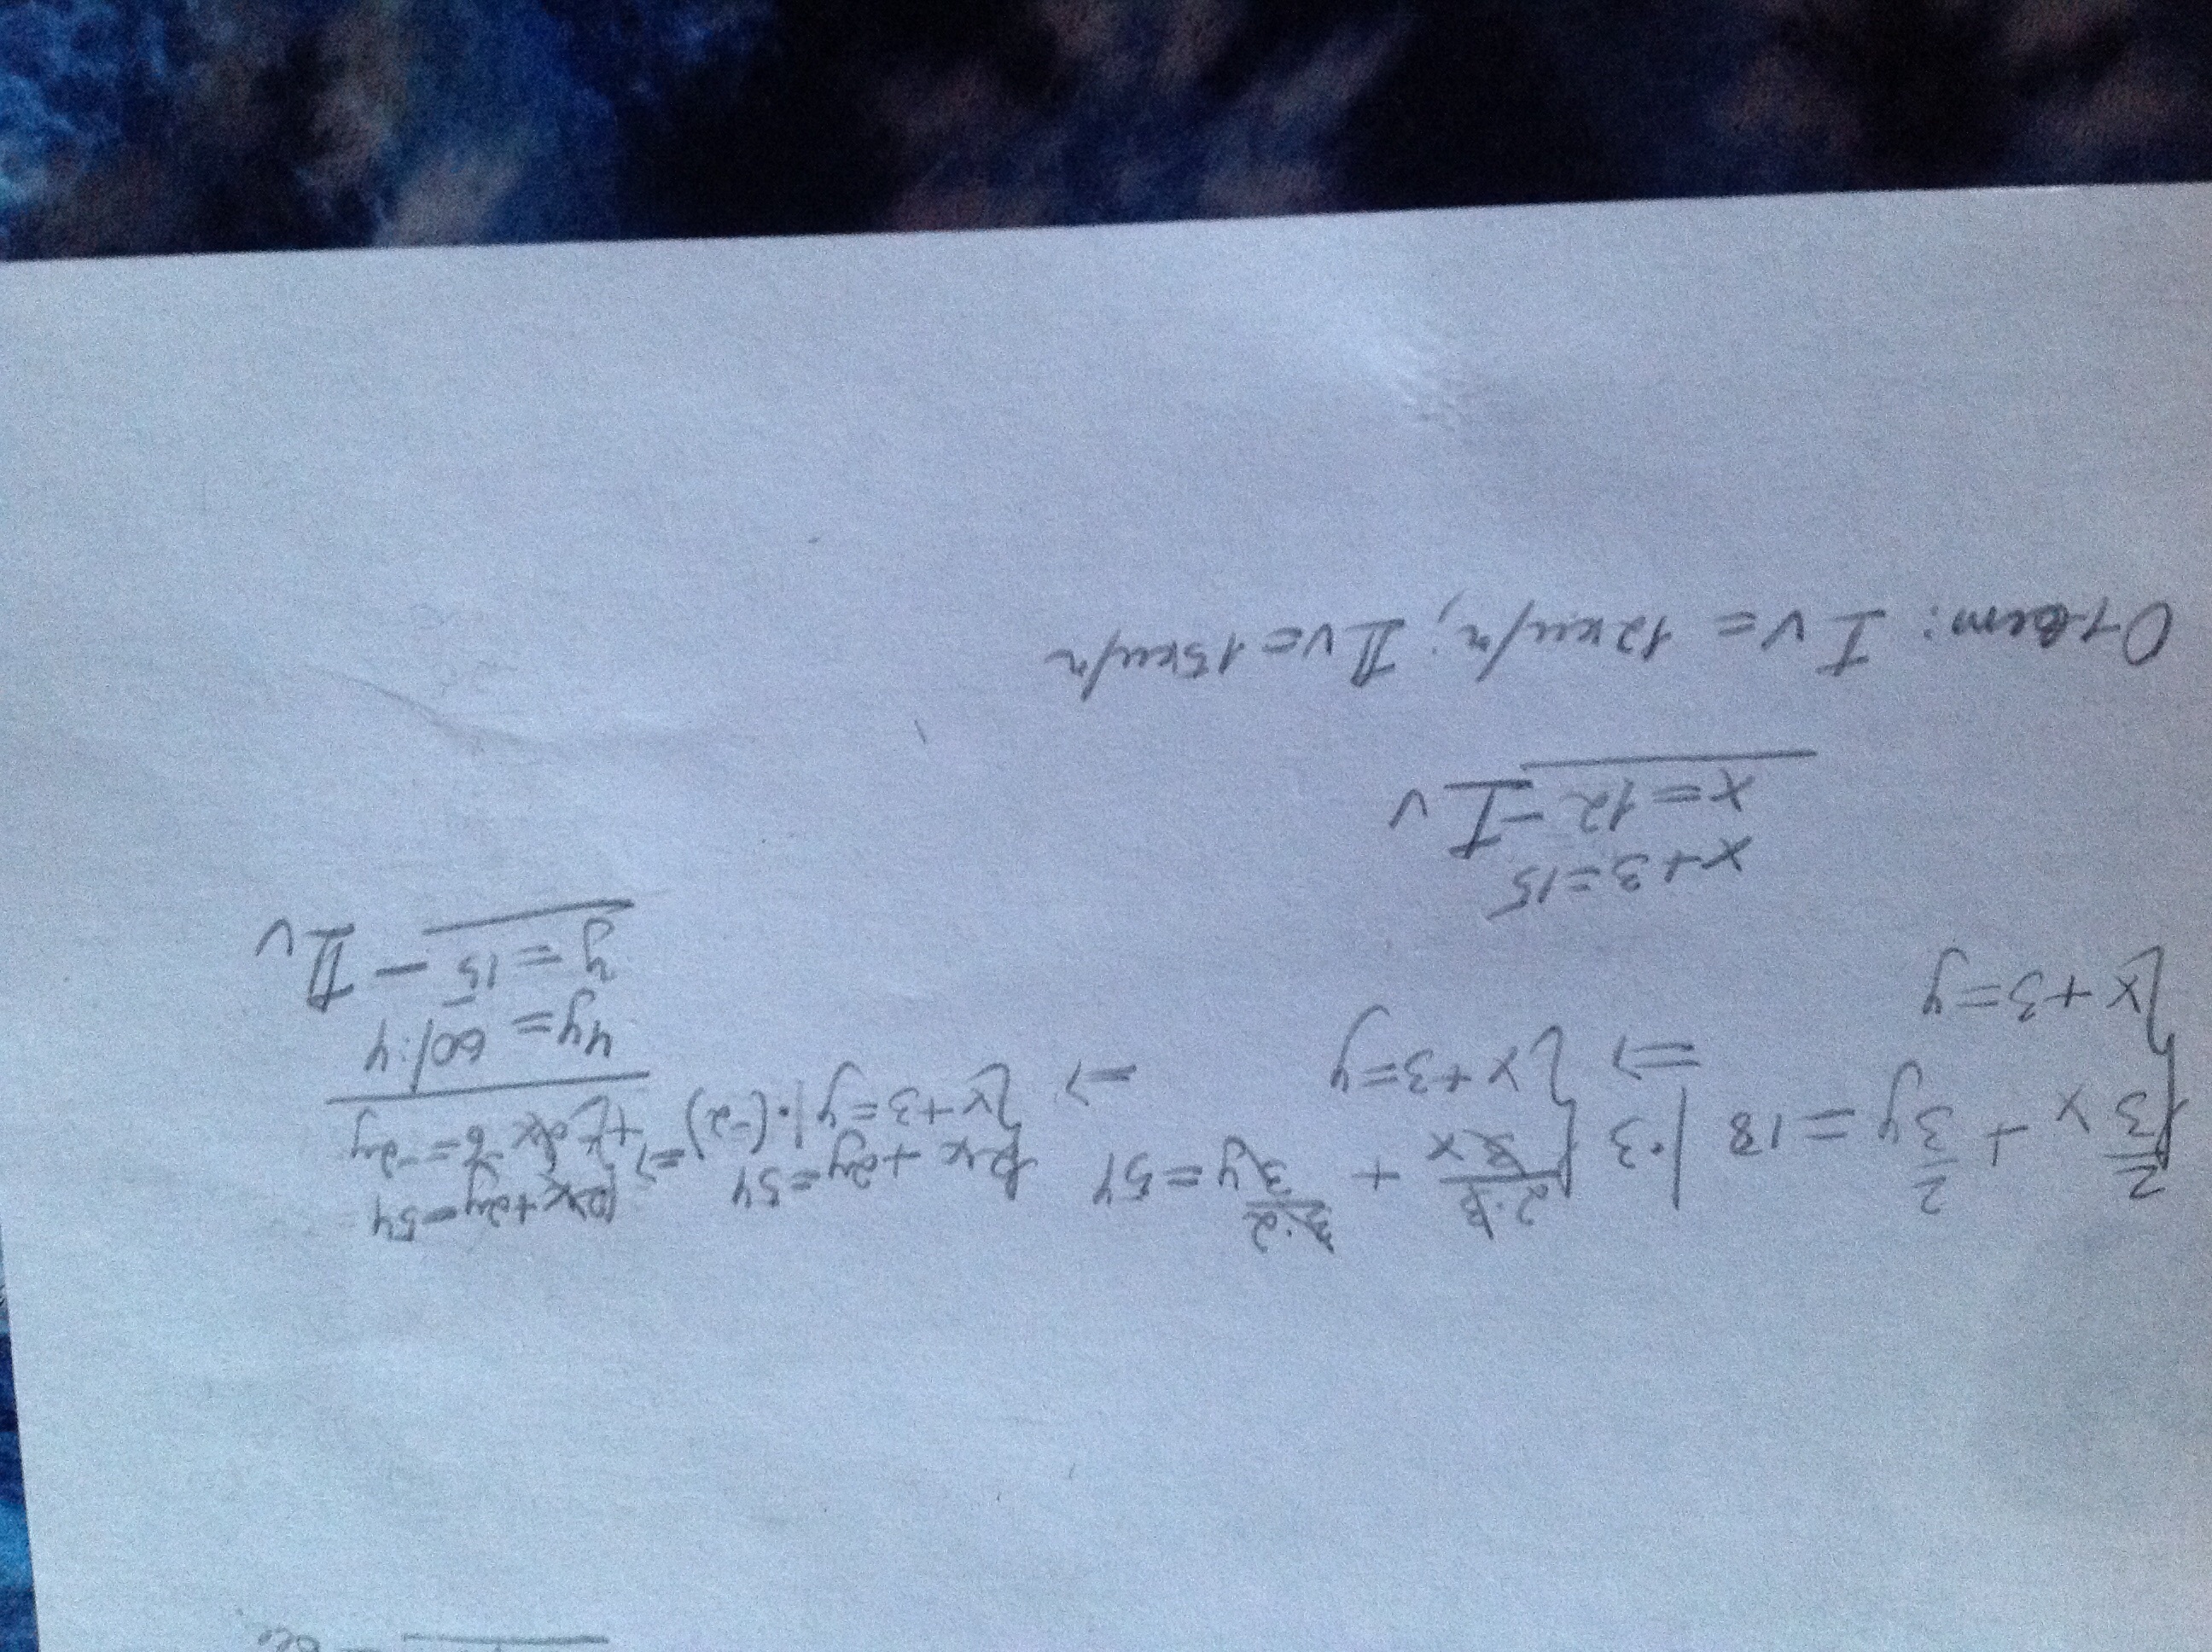 {2/3 x + 2/3 y = 18 |·3 {2·3/3 x + 3·2/3 y = 54 {2x+2y=54 => {2x+2y=54
{x+3=y => {x+3=y => {x+3=y |·(-2) + {-2x-6=-2y
4y = 60 |:4
y = 15 – II v
x+3=15
x=12 – I v
Ответ: I v = 12 км/ч; II v = 15 км/ч